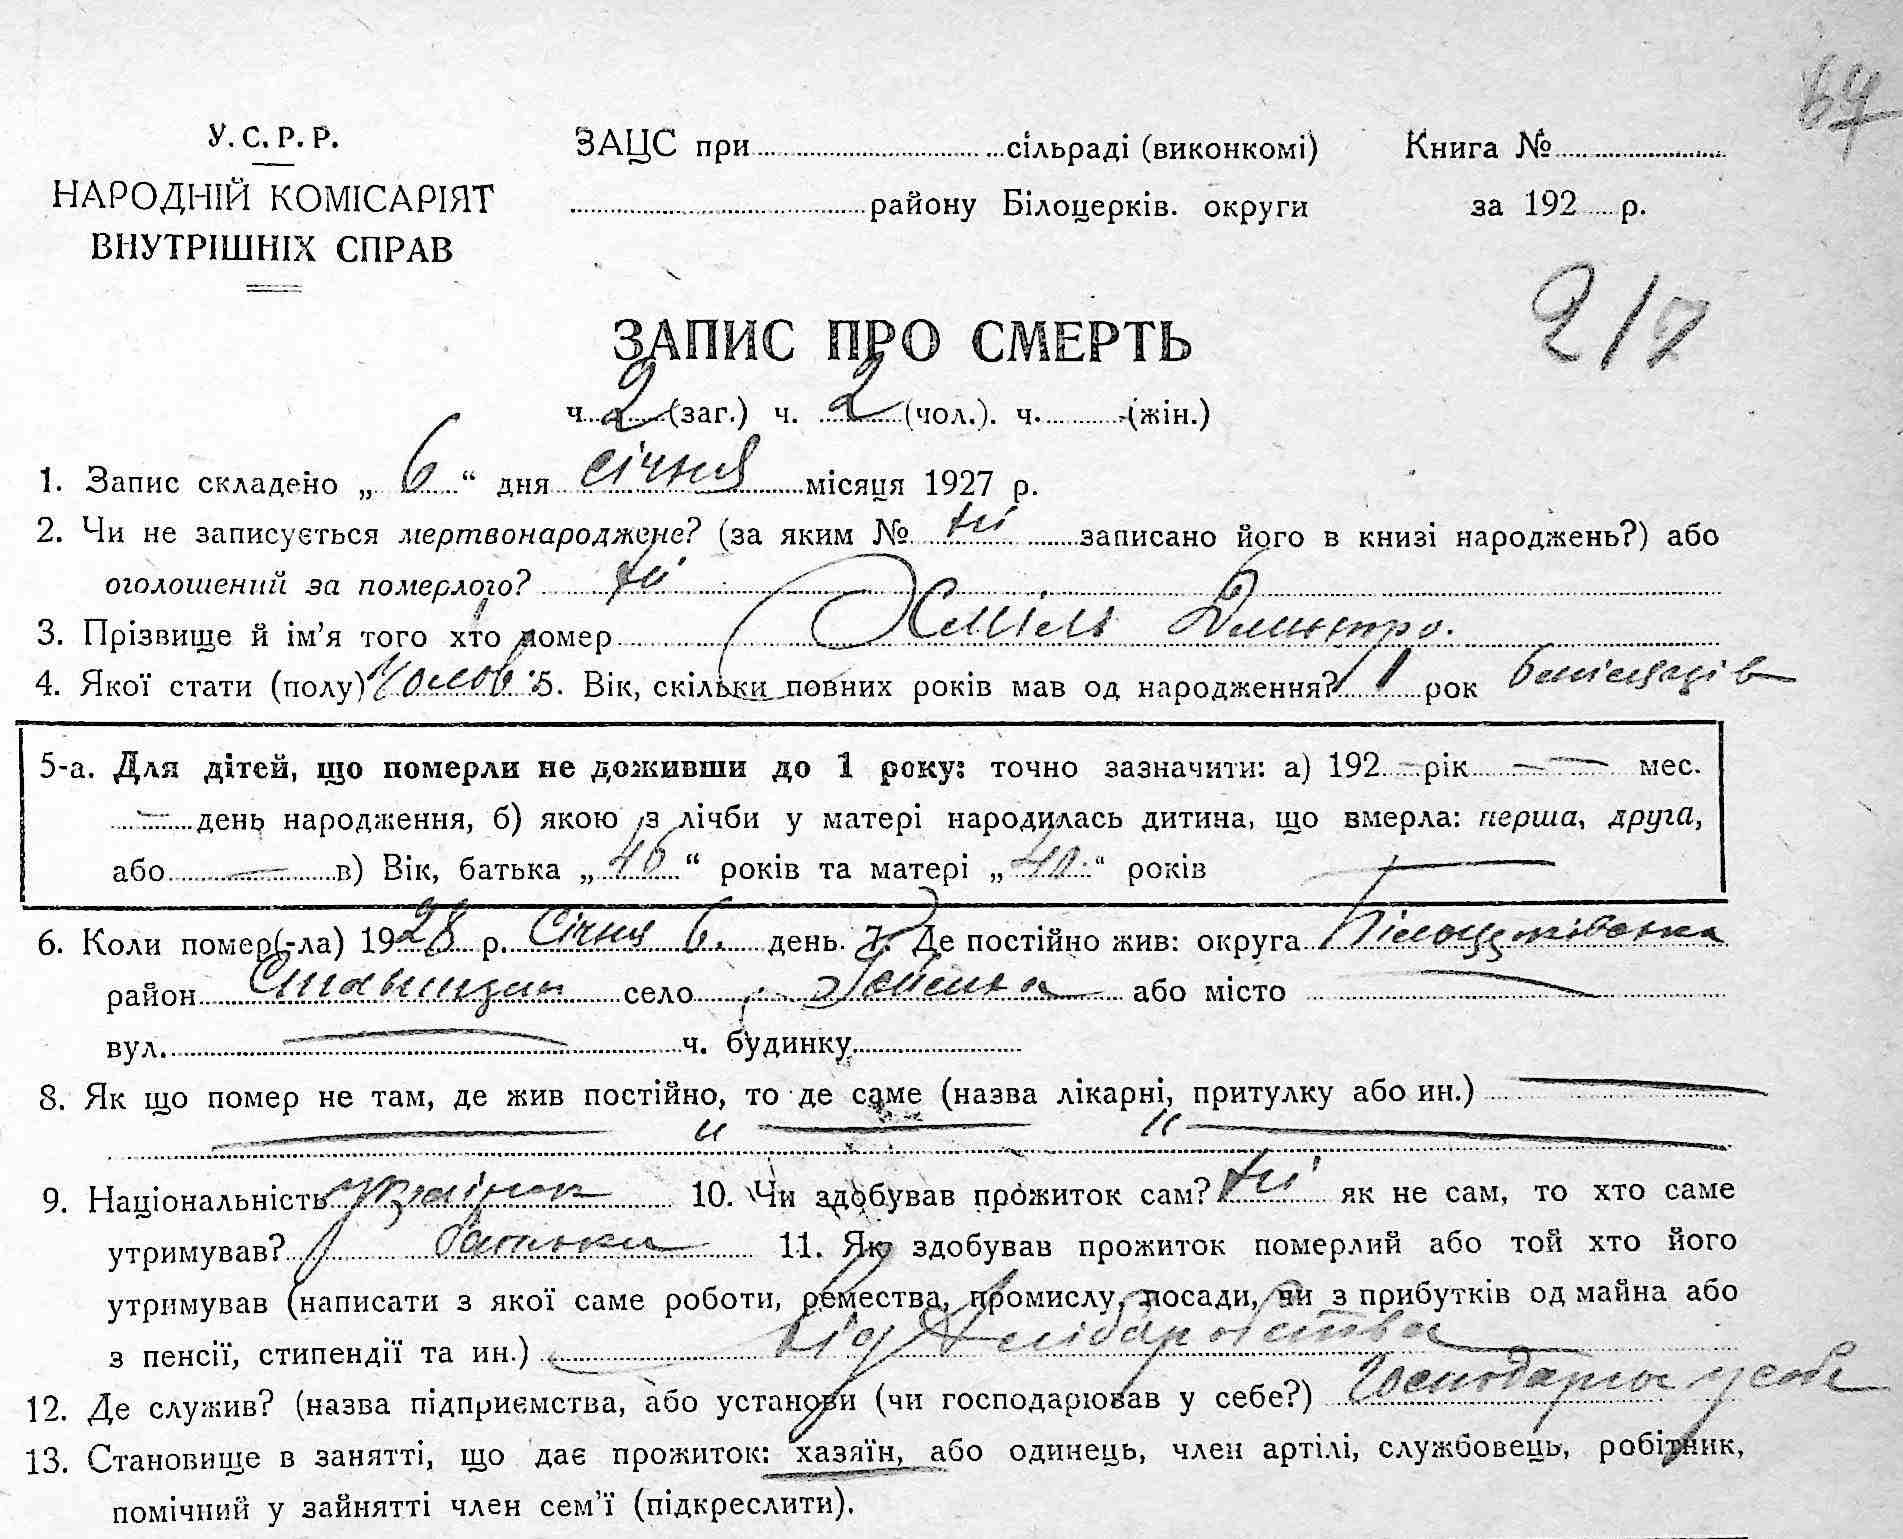 У.С.Р.Р.
НАРОДНІЙ КОМІСАРІЯТ
ВНУТРІШНІХ СПРАВ
ЗАЦС при сільраді (виконкомі)
району Білоцерків. округи
Книга №
за 192 р.
217
ЗАПИС ПРО СМЕРТЬ
ч. 2 (заг.) ч. 2 (чол.). ч. (жін.)
1. Запис складено „ 6 “ дня січня місяця 1927 р.
2. Чи не записується мертвонароджене? (за яким № ні записано його в книзі народжень?) або
оголошений за померлого? ні
3. Прізвище й ім’я того хто помер Хміль Дмитро.
4. Якої стати (полу) чолов 5. Вік, скільки повних років мав од народження? 1 рок 6 місяців
5-а. Для дітей, що померли не доживши до 1 року: точно зазначити: а) 192 – рік — мес.
— день народження, б) якою з лічби у матері народилась дитина, що вмерла: перша, друга,
або — в) Вік, батька „ 46 “ років та матері „ 40 “ років
6. Коли помер(-ла) 1928 р. Січня 6. день. 7. Де постійно жив: округа Білоцерківська
район Ставищан село або місто
вул. ч. будинку
8. Як що помер не там, де жив постійно, то де саме (назва лікарні, притулку або ин.)
— „ — „ —
9. Національність українец 10. Чи здобував прожиток сам? ні як не сам, то хто саме
утримував? батьки 11. Як здобував прожиток померлий або той хто його
утримував (написати з якої саме роботи, ремества, промислу, посади, чи з прибутків од майна або
з пенсії, стипендії та ин.) від хліборобства
12. Де служив? (назва підприємства, або установи (чи господарював у себе?) Господарює у себе
13. Становище в занятті, що дає прожиток: хазяїн, або одинець, член артілі, службовець, робітник,
помічний у зайнятті член сем’ї (підкреслити).